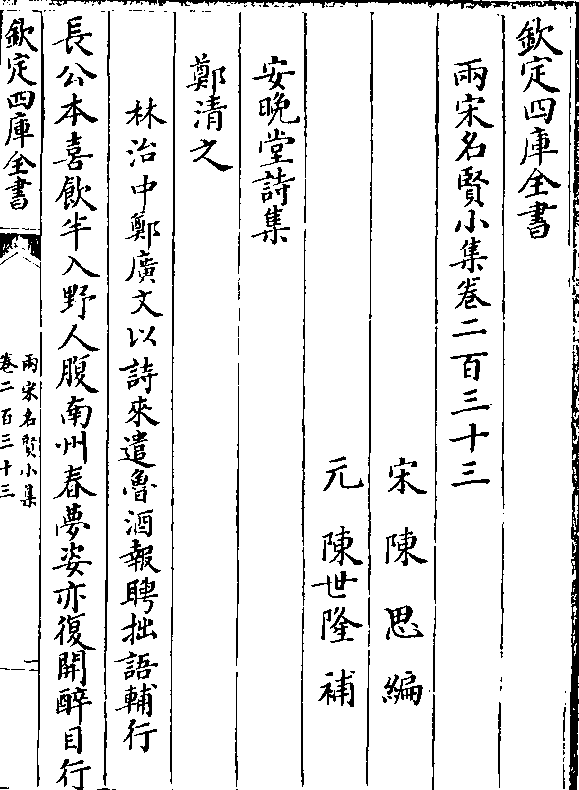 欽定四庫全書
兩宋名賢小集卷二百三十三
宋 陳思 編
元 陳世隆 補
安晚堂詩集
鄭清之
林治中鄭廣文以詩來遣魯酒報聘拙語輔行
長公本喜飲半入野人腹南州春夢姿亦復開醉目行
欽定四庫全書
兩宋名賢小集
卷二百三十三
一